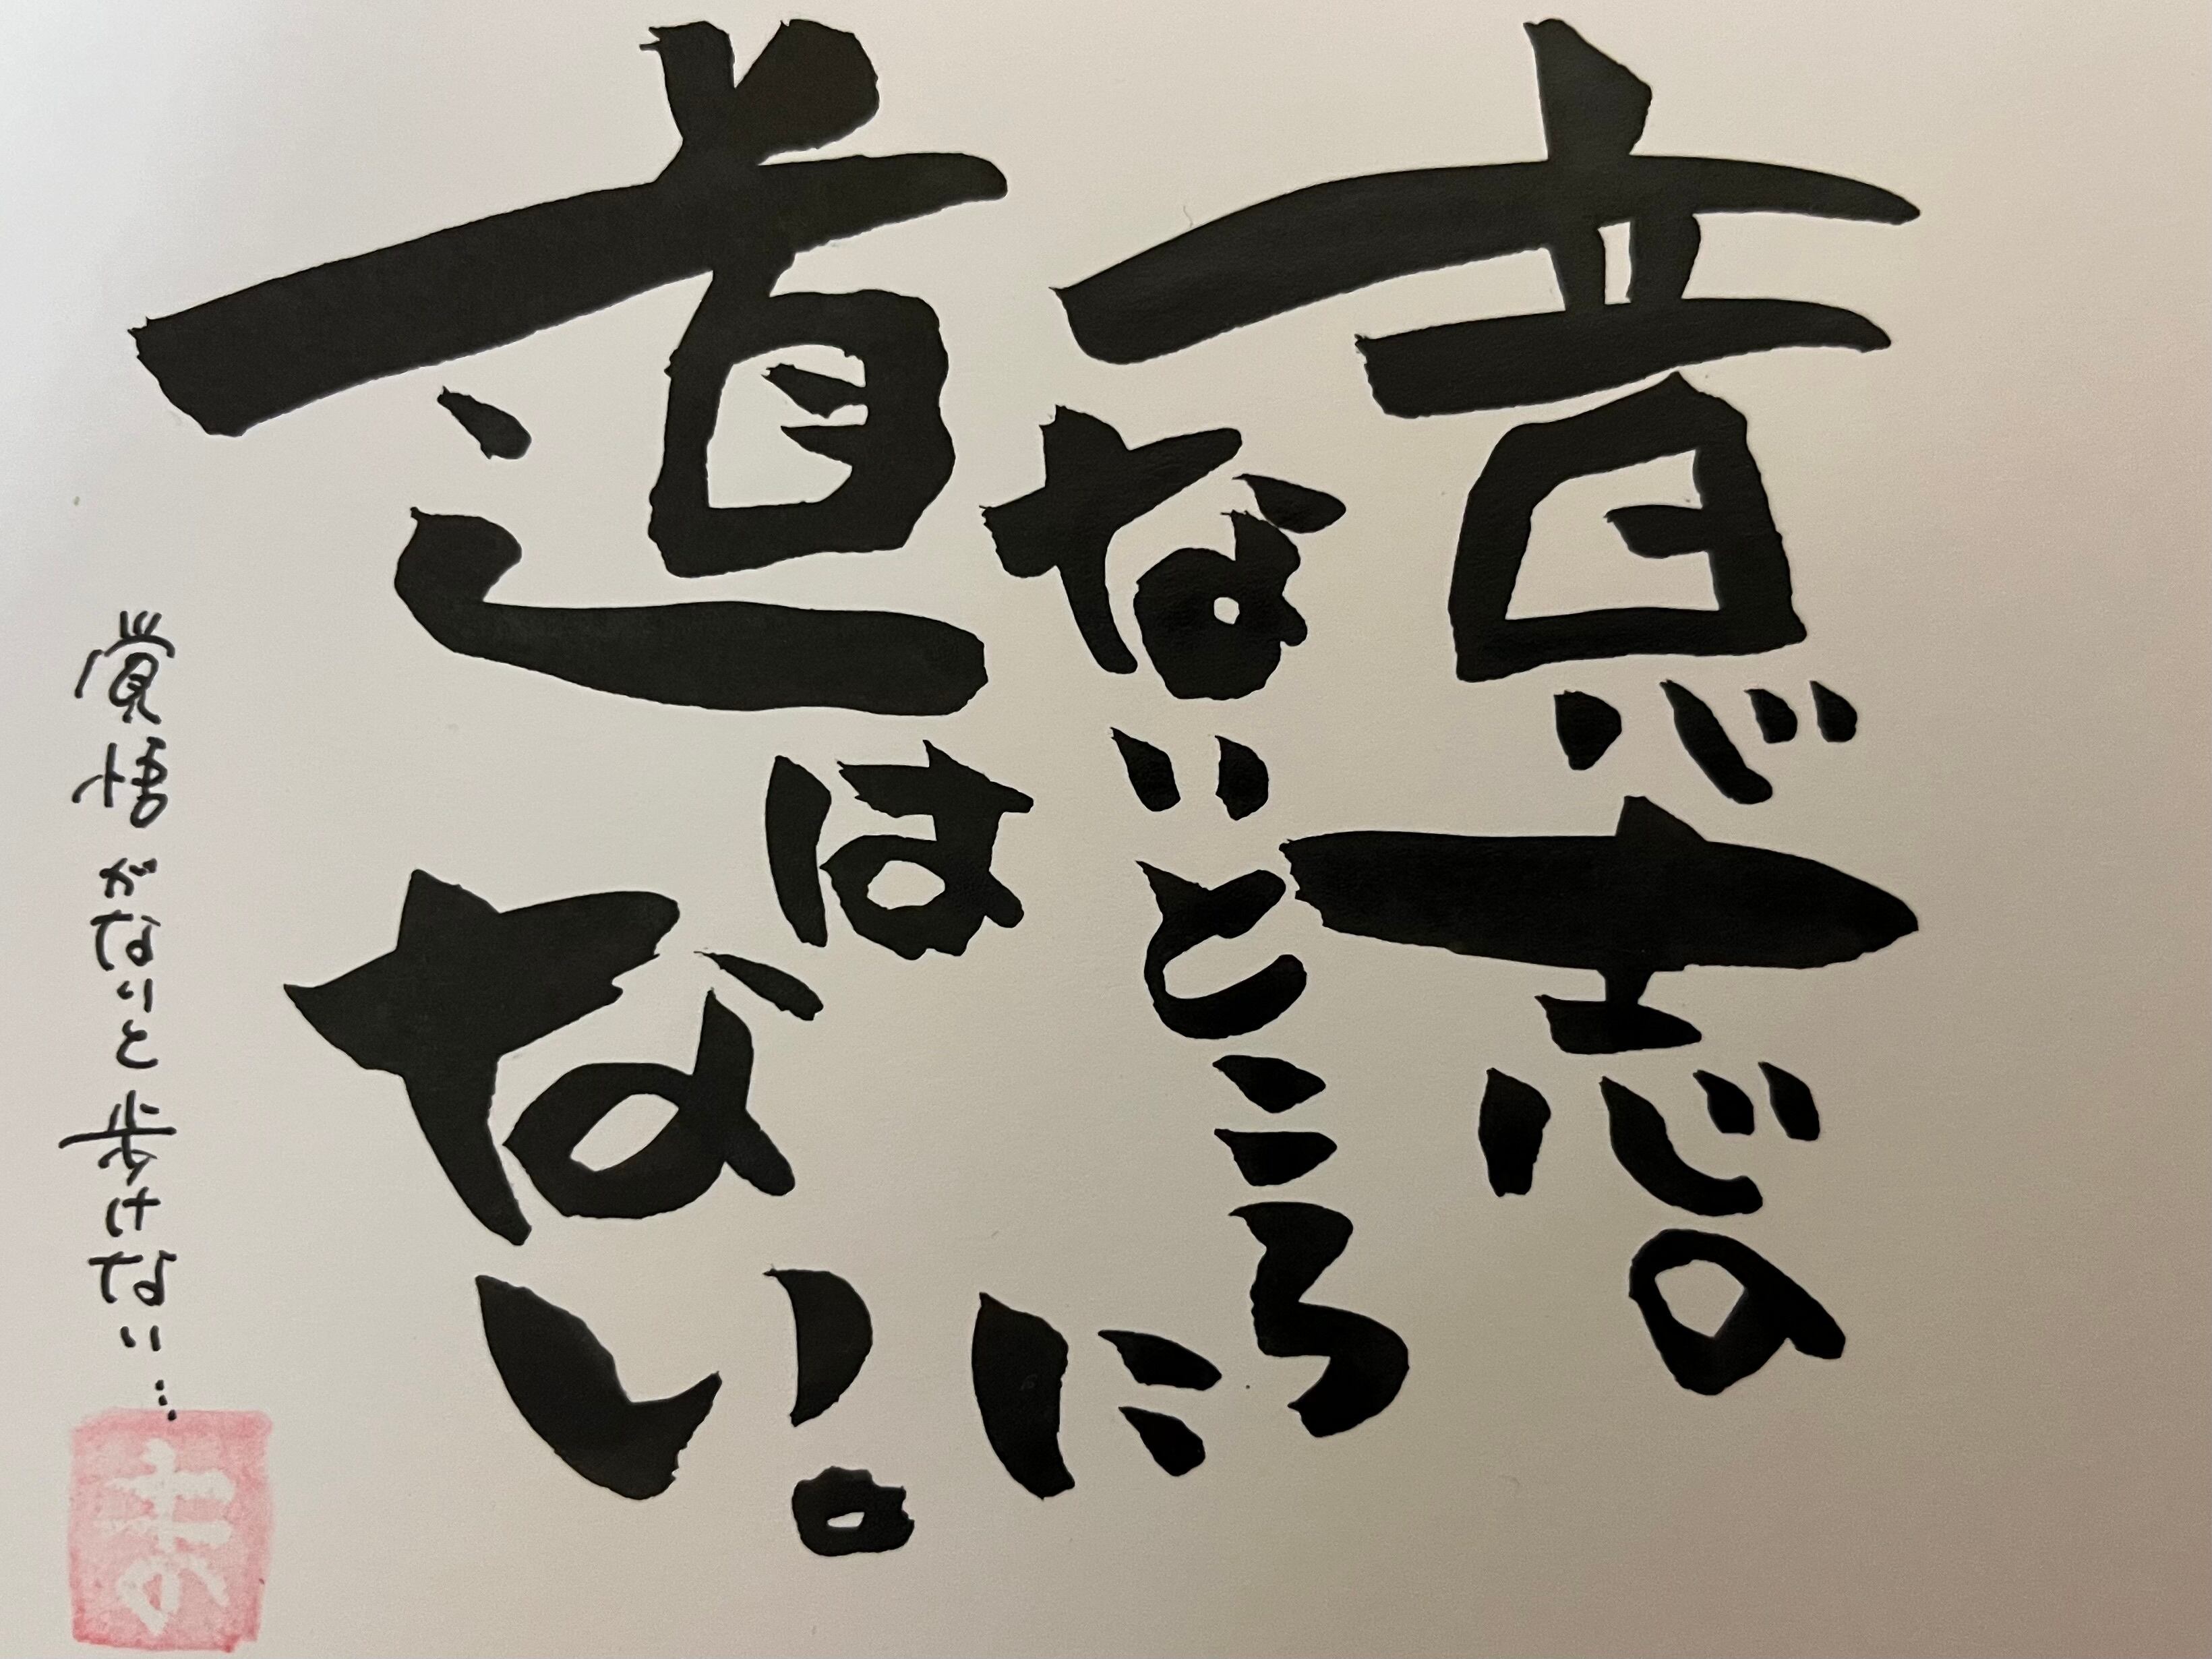 意志の
ないところに
道は
ない。
覚悟がないと歩けない…
ま